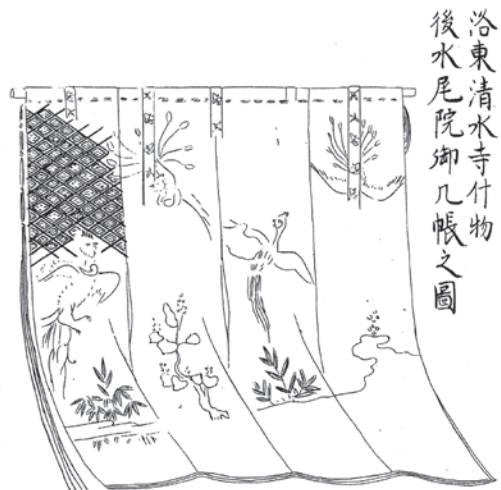 洛東清水寺什物
後水尾院御几帳之圖